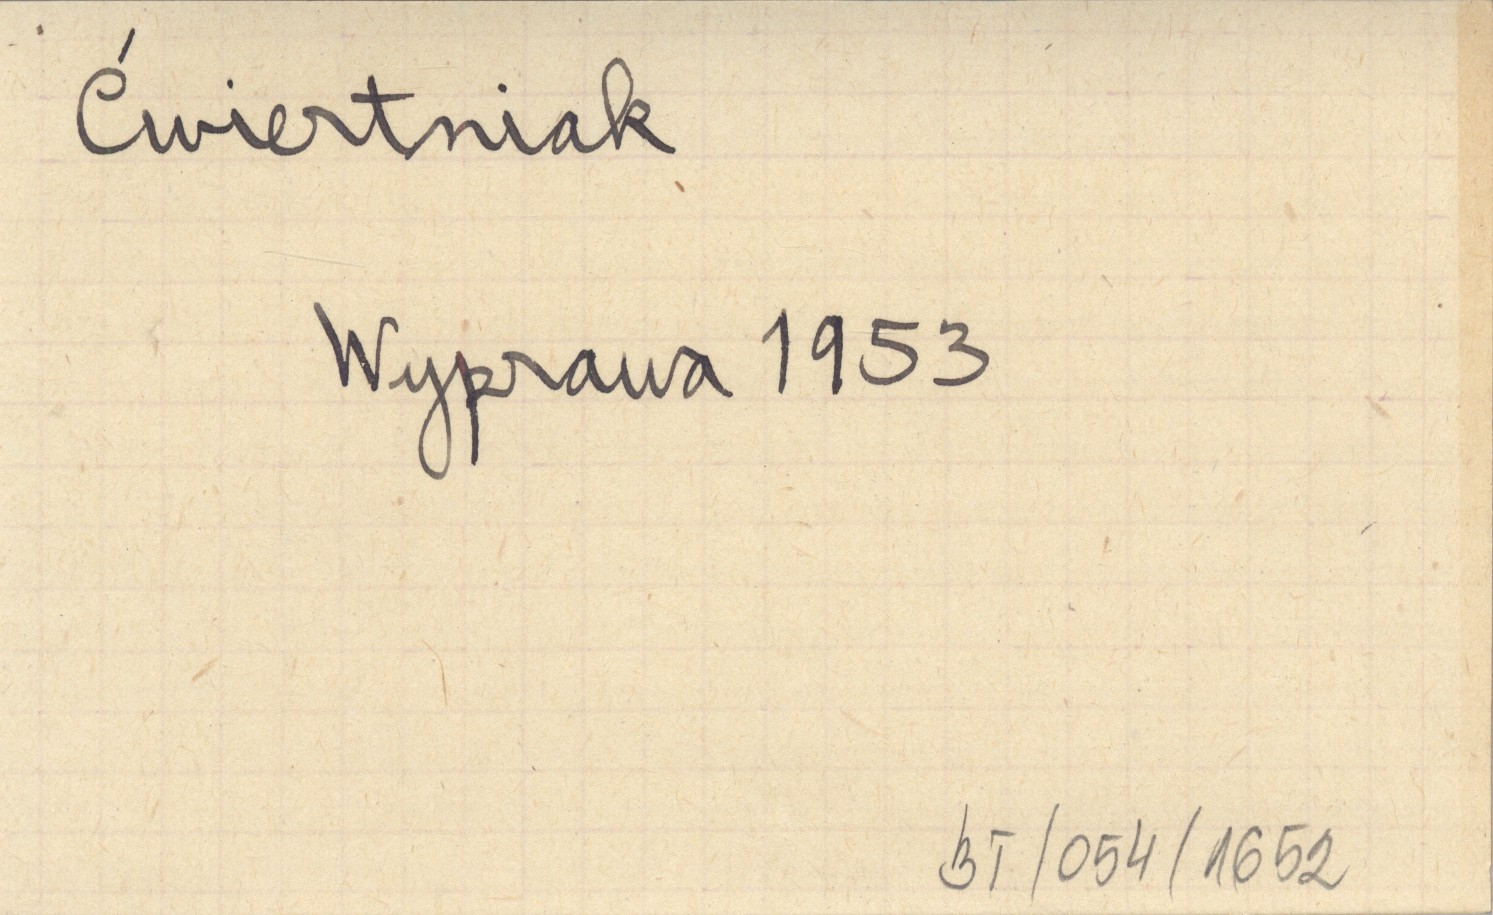 Ćwiertniak
Wyprawa 1953
BT/054/1652